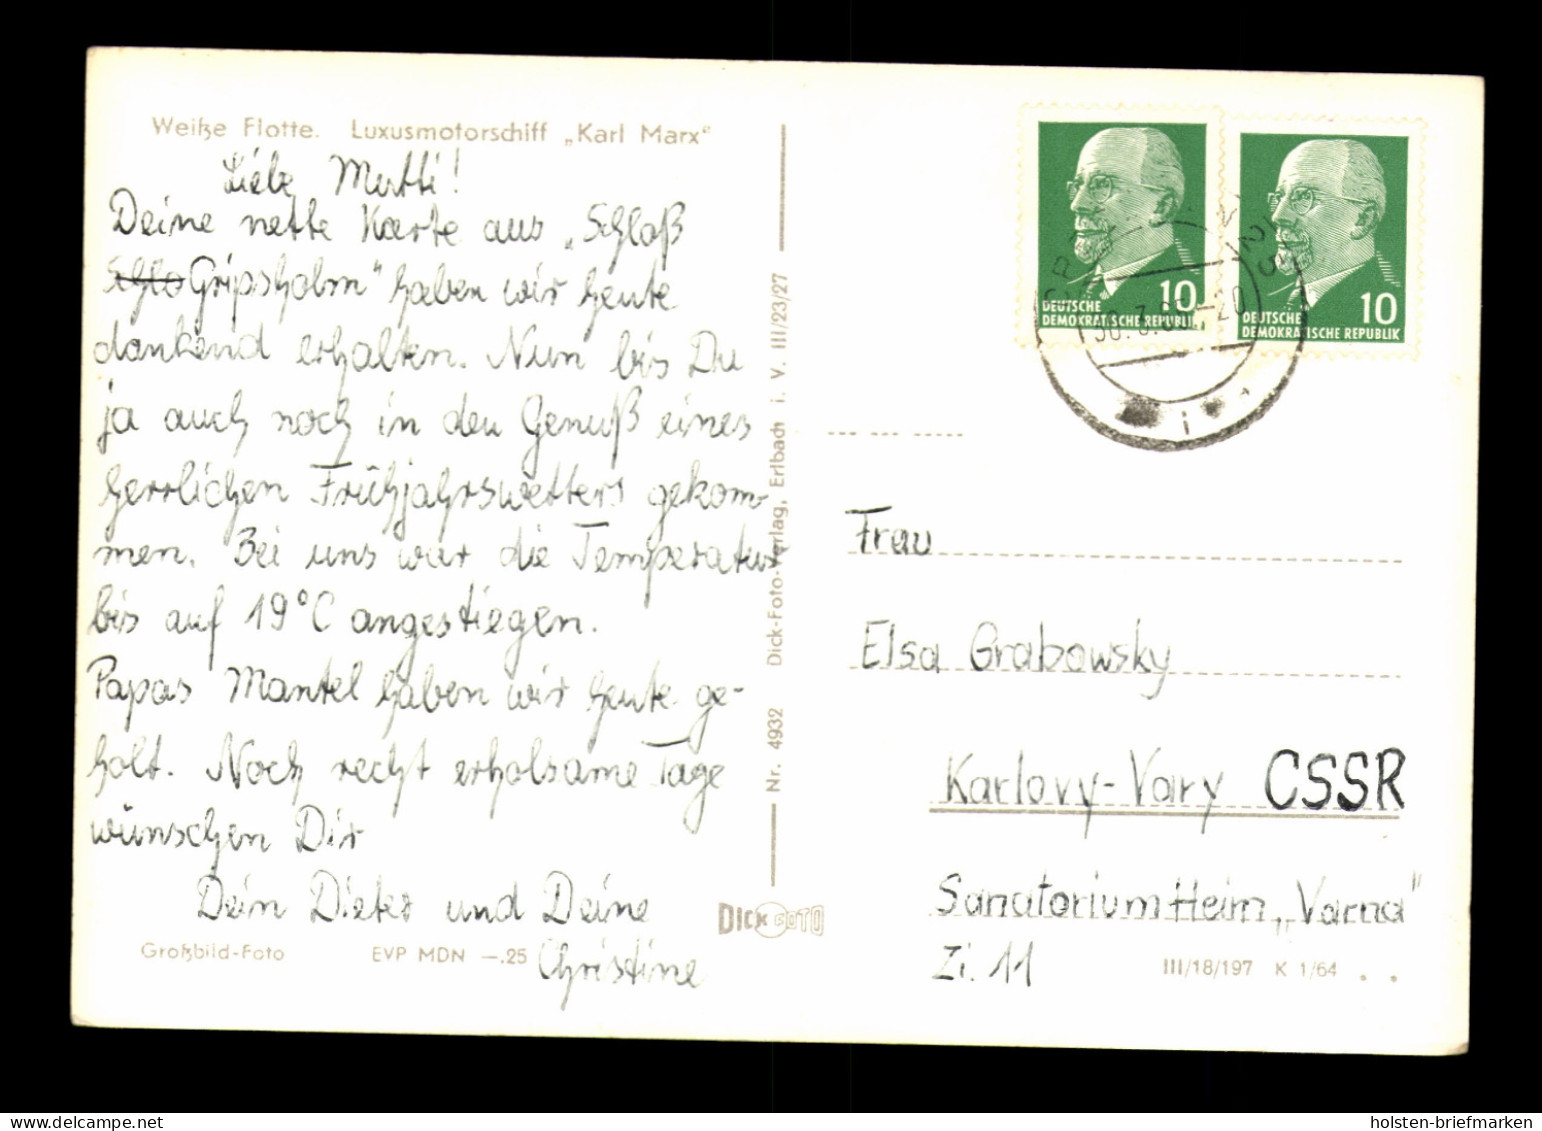 Weiße Flotte. Luxusmotorschiff „Karl Marx"
Liebe Mutti!
Deine nette Karte aus „Schloß
Schlo Gripsholm" haben wir heute
dankend erhalten. Nun bis Du
ja auch noch in den Genuß eines
herrlichen Frühjahrswetters gekom-
men. Bei uns war die Temperatur
bis auf 19°C angestiegen.
Papas Mantel haben wir heute ge-
holt. Noch recht erholsame Tage
wünschen Dir
Dein Dieter und Deine
Christine
Großbild-Foto EVP MDN —.25
Nr. 4932 Dick-Foto-Verlag, Erlbach i. V. III/23/27
DICK FOTO
10
DEUTSCHE
DEMOKRATISCHE REPUBLIK
10
DEUTSCHE
DEMOKRATISCHE REPUBLIK
Frau
Elsa Grabowsky
Karlovy-Vary CSSR
Sanatorium Heim „Varna"
Zi. 11
III/18/197 K 1/64
holsten-briefmarken